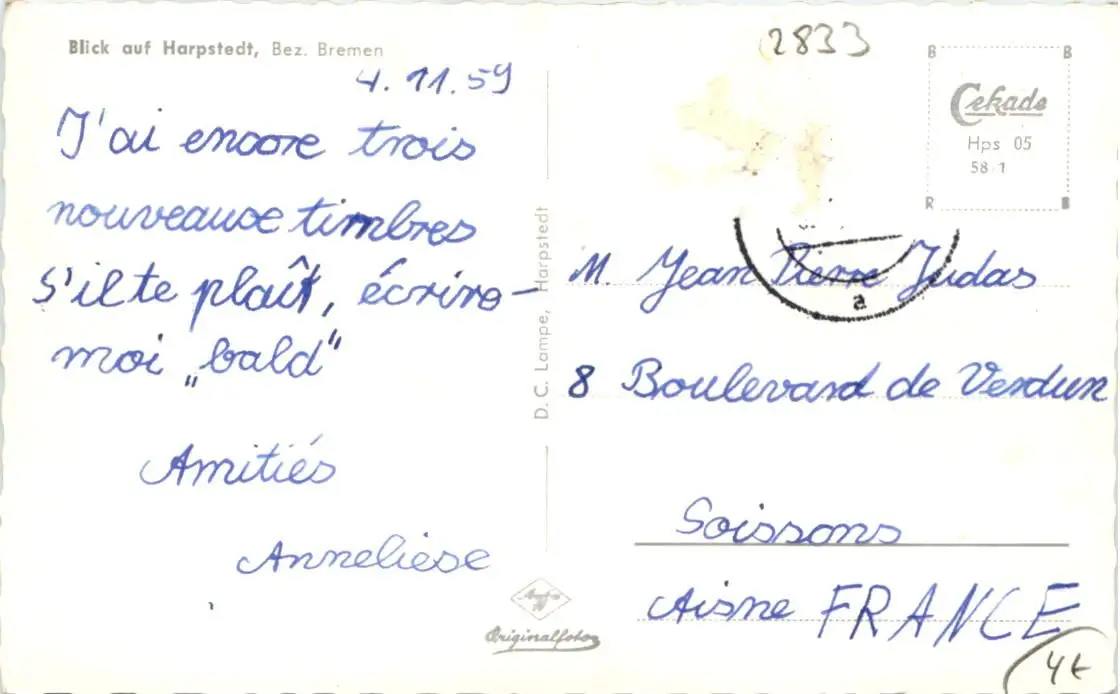 Blick auf Harpstedt, Bez. Bremen
4.11.59
J'ai encore trois
nouveause timbres
s'il te plaît, écrire-
moi „bald"
Amitiés
Anneliese
D. C. Lampe, Harpstedt
Agfa
Originalfoto
2833
B B
Cekade
Hps 05
58/1
R B
a
M. Jean Pierre Judas
8 Boulevard de Verdun
Soissons
Aisne FRANCE
4t